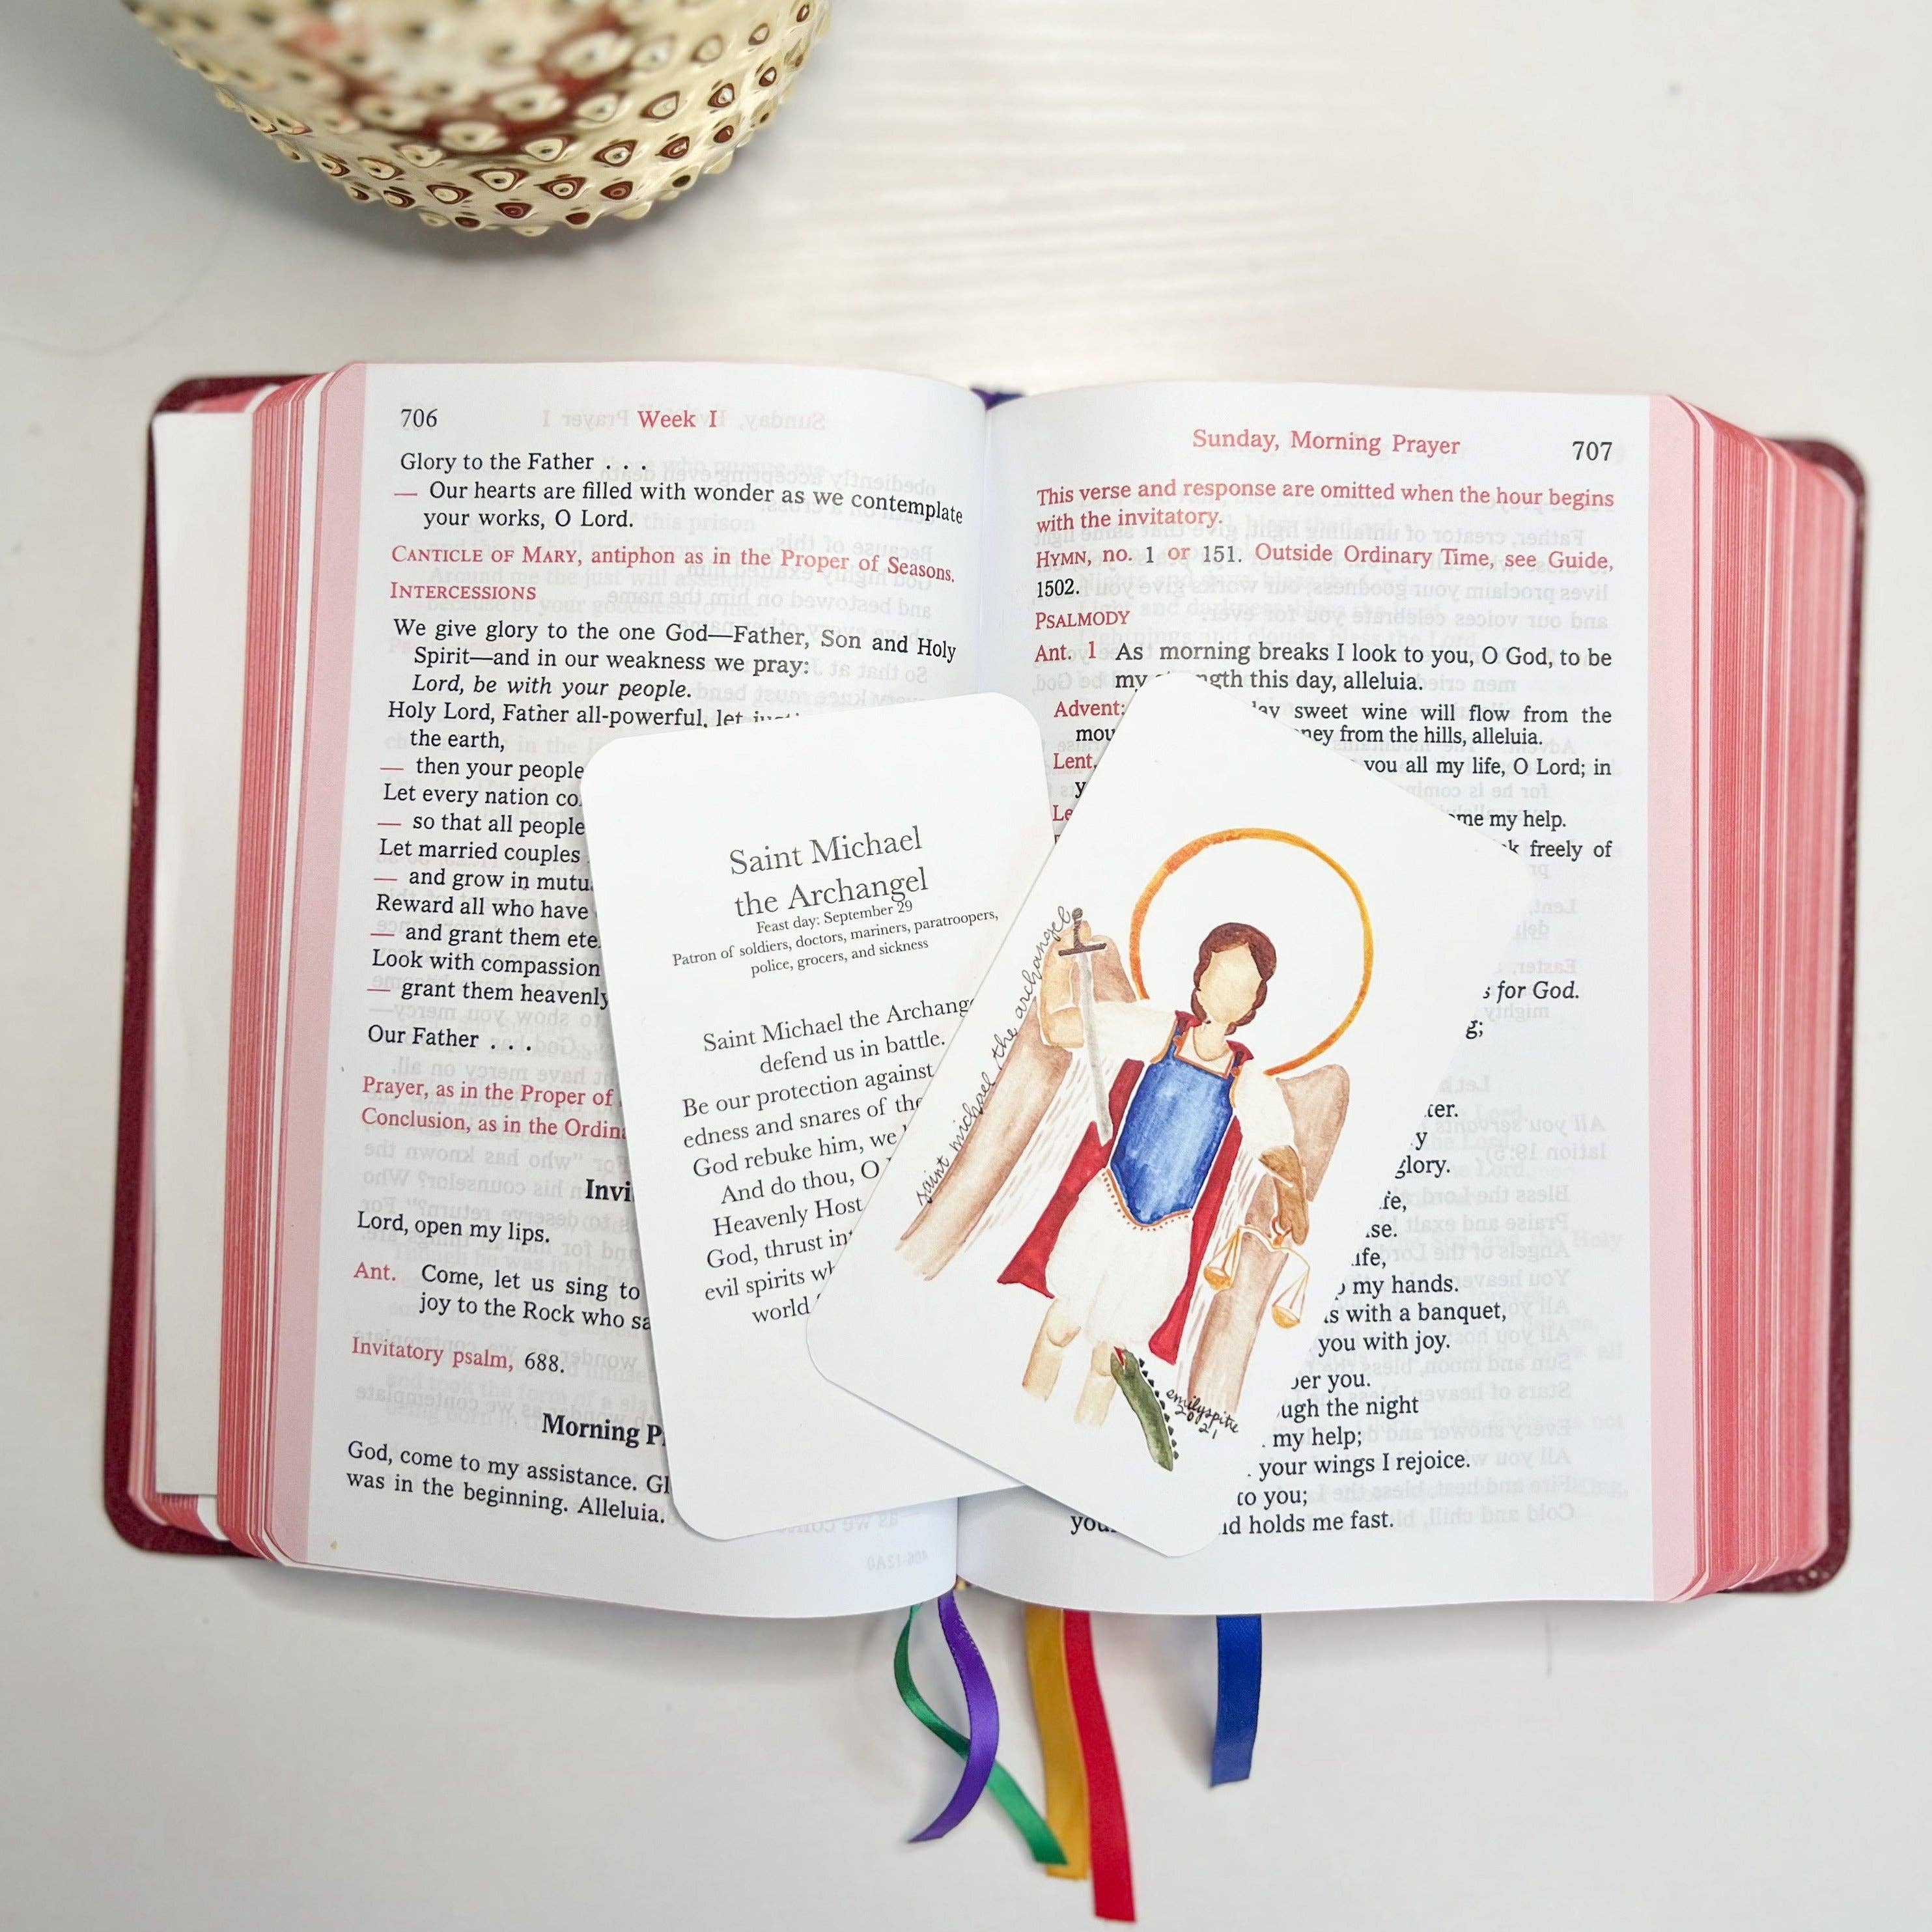 706 Week I
Glory to the Father . . .
— Our hearts are filled with wonder as we contemplate
your works, O Lord.
CANTICLE OF MARY, antiphon as in the Proper of Seasons.
INTERCESSIONS
We give glory to the one God—Father, Son and Holy
Spirit—and in our weakness we pray:
Lord, be with your people.
Holy Lord, Father all-powerful, let
the earth,
— then your people
Let every nation
— so that all people
Let married couples
— and grow in
Reward all who have
— and grant them
Look with compassion
— grant them heavenly
Our Father . . .
Prayer, as in the Proper of
Conclusion, as in the
Lord, open my lips.
Ant. Come, let us sing to
joy to the Rock who
Invitatory psalm, 688.
Morning
God, come to my assistance.
was in the beginning. Alleluia.
Sunday, Morning Prayer 707
This verse and response are omitted when the hour begins
with the invitatory.
HYMN, no. 1 or 151. Outside Ordinary Time, see Guide,
1502.
PSALMODY
Ant. 1 As morning breaks I look to you, O God, to be
my this day, alleluia.
Advent: sweet wine will flow from the
from the hills, alleluia.
Lent, you all my life, O Lord; in
my help.
freely of
for God.
glory.
my hands.
with a banquet,
you with joy.
you.
the night
my help;
your wings I rejoice.
to you;
holds me fast.
Saint Michael
the Archangel
Feast day: September 29
Patron of soldiers, doctors, mariners, paratroopers,
police, grocers, and sickness
Saint Michael the
defend us in battle.
Be our protection against
edness and snares of
God rebuke him, we
And do thou, O
Heavenly Host
God, thrust
evil spirits
world
saint michael the archangel
emilyspitie
2021